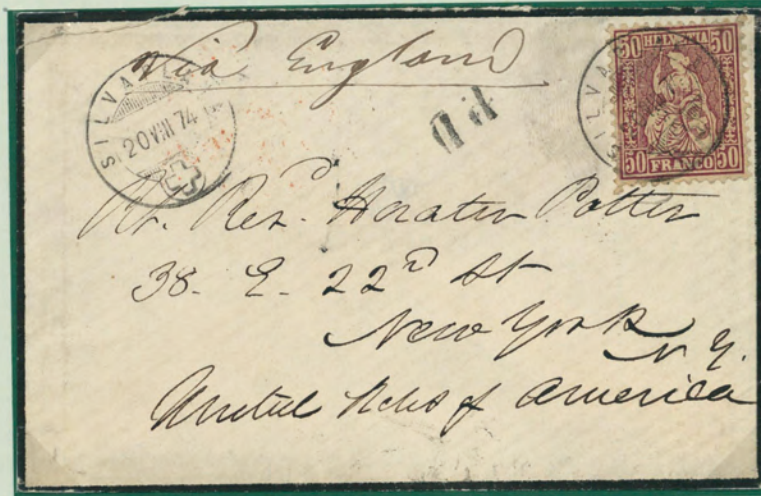 Via England
SILVA
20 VIII 74
PD
50 HELVETIA 50
SILVA
50 FRANCO 50
Rt. Rev.d Horatio Potter
38. E. 22d St
New York
N.Y.
United States of America